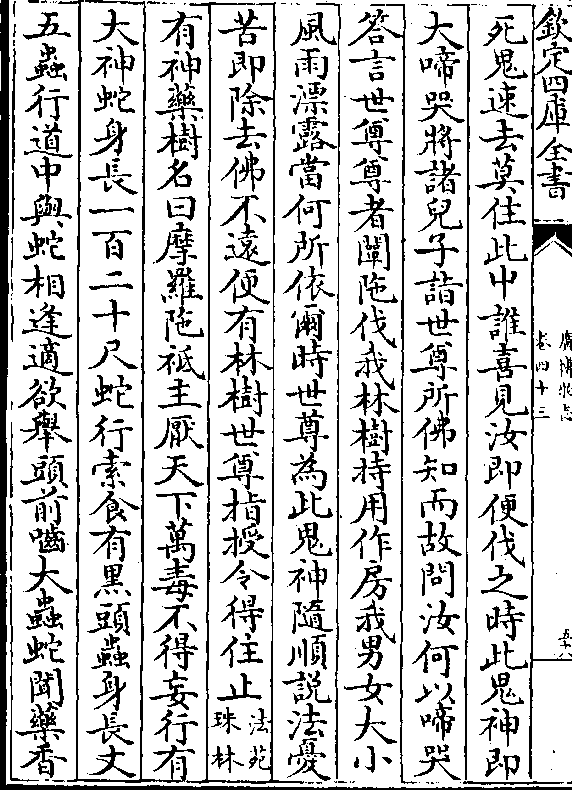 欽定四庫全書
廣博物志
卷四十三
五十八
死鬼速去莫住此中誰喜見汝即便伐之時此鬼神即
大啼哭將諸兒子詣世尊所佛知而故問汝何以啼哭
答言世尊尊者闡陁伐我林樹持用作房我男女大小
風雨漂露當何所依爾時世尊為此鬼神隨順説法憂
苦即除去佛不遠便有林樹世尊指授令得住止法苑
珠林
有神藥樹名曰摩羅陁祇主厭天下萬毒不得妄行有
大神蛇身長一百二十尺蛇行索食有黒頭蟲身長丈
五蟲行道中與蛇相逢適欲舉頭前嚙大蟲蛇聞藥香